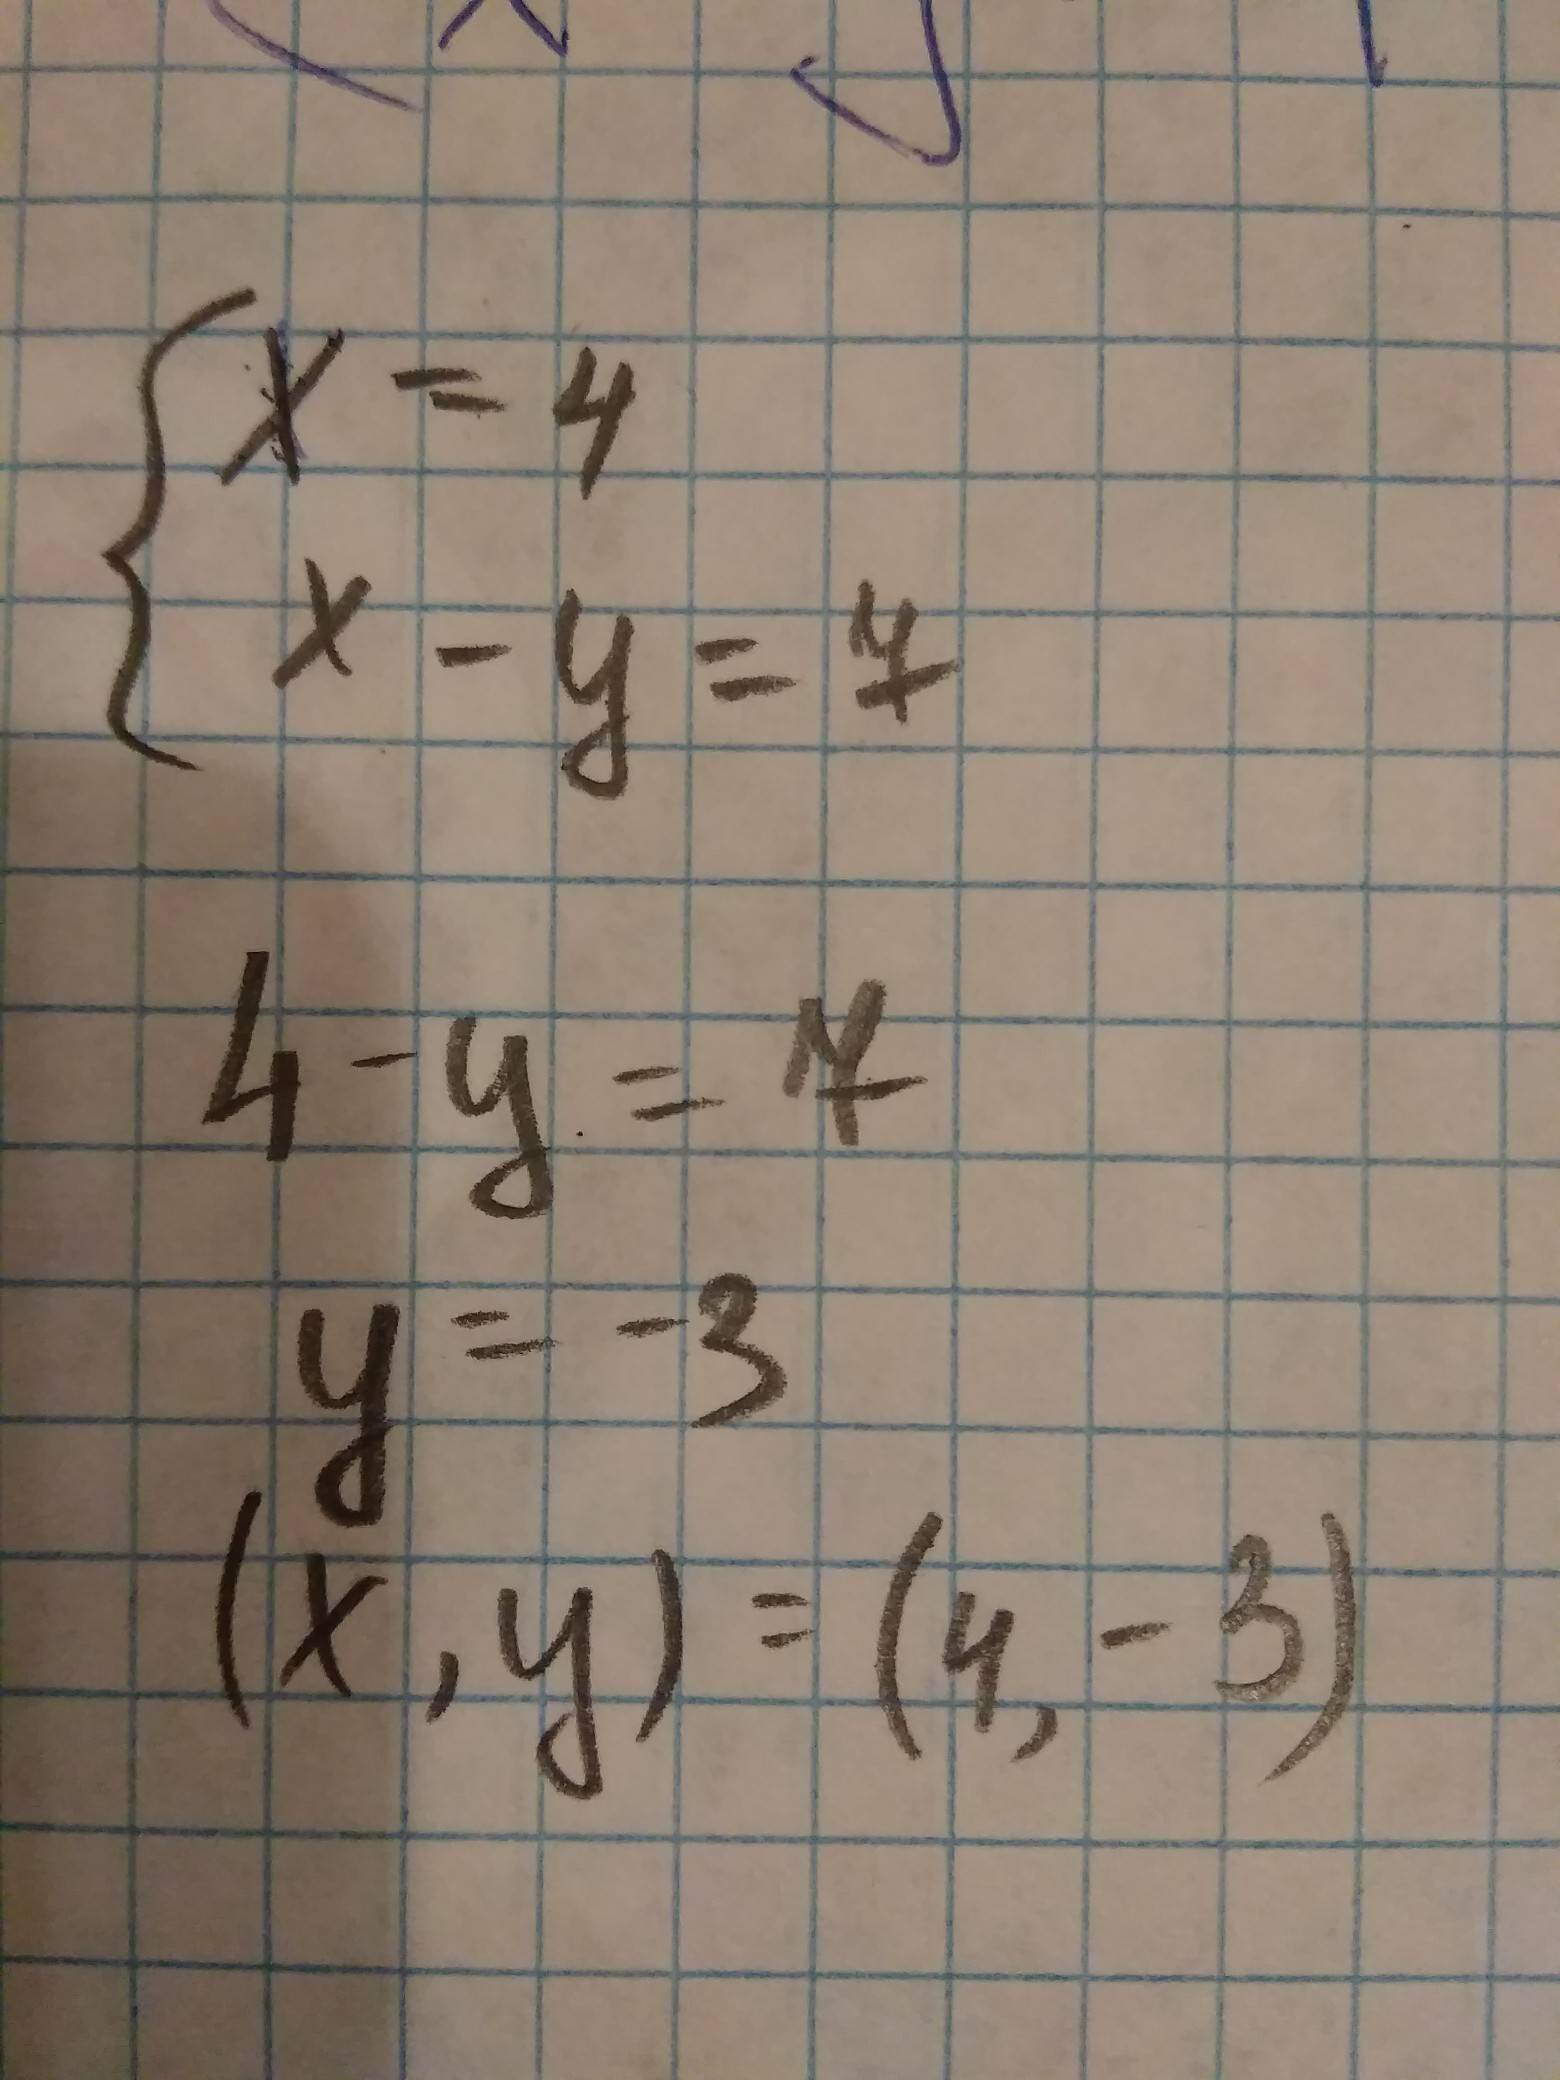 x = 4
x - y = 7
4 - y = 7
y = -3
(x, y) = (4, -3)